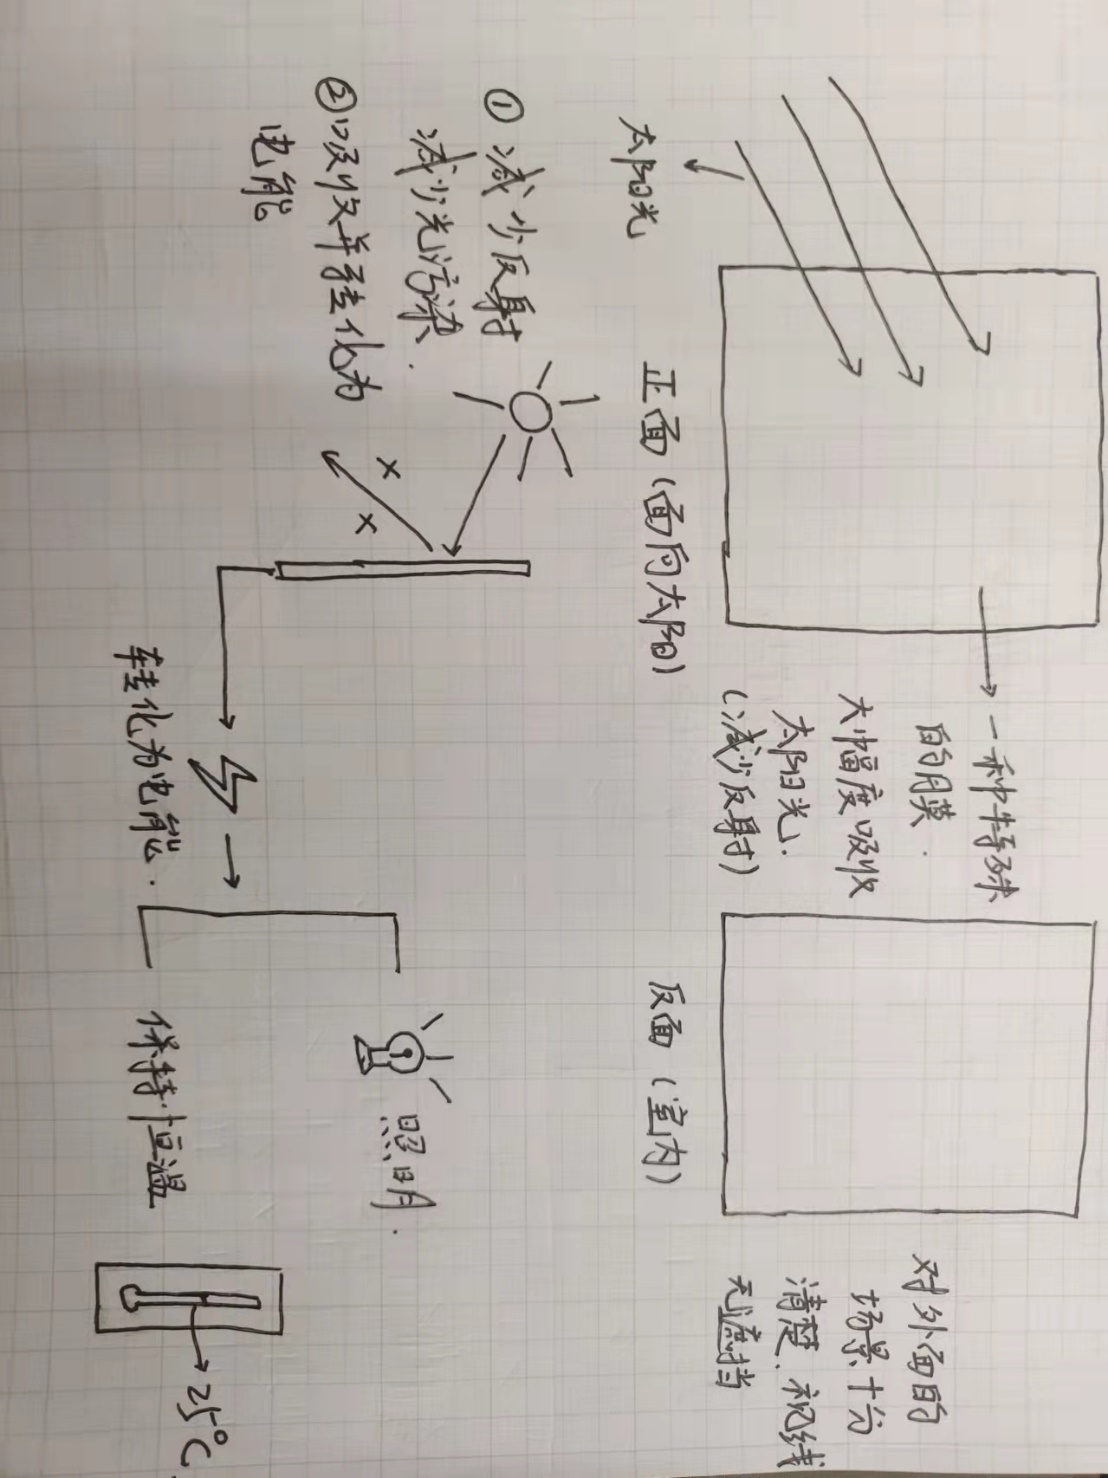 太阳光
正面(面向太阳)
一种特殊
的膜.
大幅度吸收
太阳光.
(减少反射)
反面(室内)
对外面的
场景十分
清楚.视线
无遮挡
① 减少反射
减少光污染.
②吸收并转化为
电能
×
×
转化为电能.
照明.
保持恒温
25°C